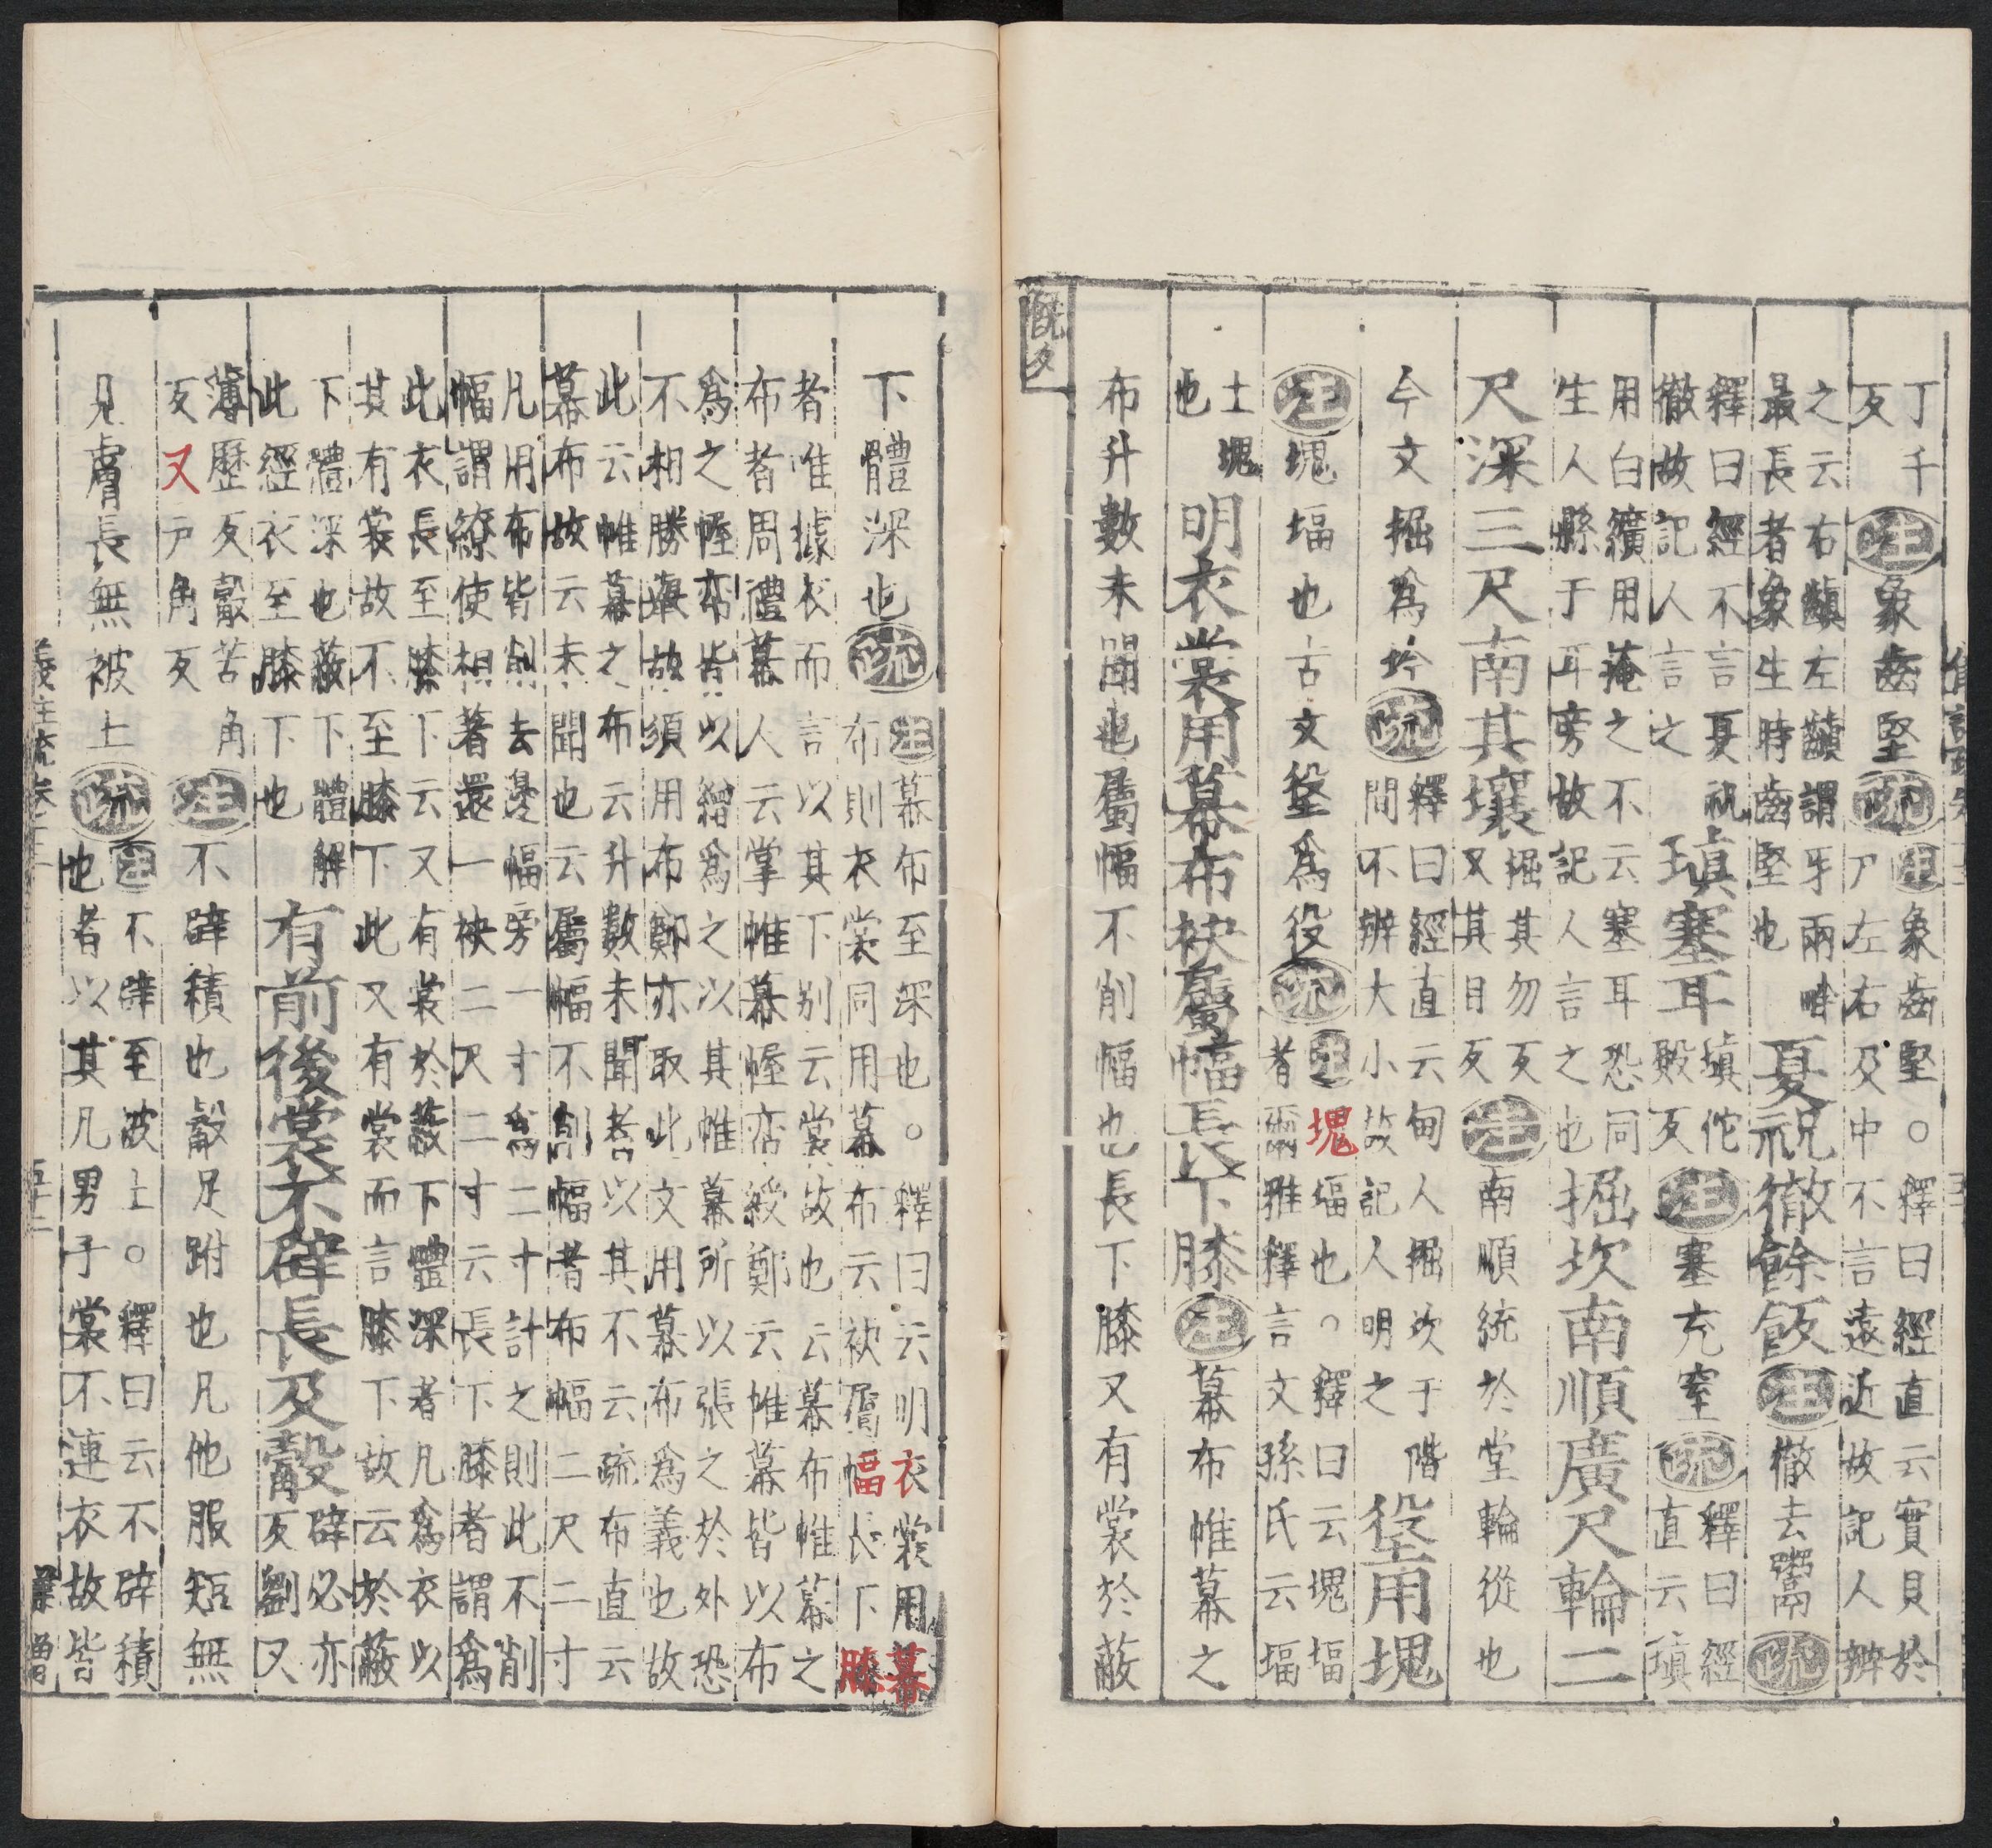 丁千
反
注象齒堅疏
注象齒堅。釋曰經直云實貝於
尸左右及中不言遠近故記人辨
之云右齻左齻謂牙兩畔
最長者象生時齒堅也
夏祝徹餘飯注徹去鬻疏
釋曰經不言夏祝
徹故記人言之
瑱塞耳
瑱佗
殿反
注塞充窒疏
釋曰經
直云瑱
用白纊用掩之不云塞耳恐同
生人縣于耳旁故記人言之也
掘坎南順廣尺輪二
尺深三尺南其壤
掘其勿反
又其目反
注南順統於堂輪從也
今文掘爲坅疏
釋曰經直云甸人掘坎于階
間不辨大小故記人明之
垼用塊
注塊堛也古文垼爲役疏
注塊堛也。釋曰云塊堛
者爾雅釋言文孫氏云堛
土塊
也
明衣裳用幕布袂屬幅長下膝注幕布帷幕之
布升數未聞也屬幅不削幅也長下膝又有裳於蔽
既夕
下體深也疏
注幕布至深也。釋曰云明衣裳用幕
布則衣裳同用幕布云袂屬幅長下膝
者唯據衣而言以其下別云裳故也云幕布帷幕之
布者周禮幕人云掌帷幕幄帟綬鄭云帷幕皆以布
爲之幄帟皆以繒爲之以其帷幕所以張之於外恐
不相勝壞故須用布鄭亦取此文用幕布爲義也故
此云帷幕之布云升數未聞者以其不云疏布直云
幕布故云未聞也云屬幅不削幅者布幅二尺二寸
凡用布皆削去邊幅旁一寸爲二寸計之則此不削
幅謂繚使相著還一袂二尺二寸云長下膝者謂爲
此衣長至膝下云又有裳於蔽下體深者凡爲衣以
其有裳故不至膝下此又有裳而言膝下故云於蔽
下體深也蔽下下體解
此經衣至膝下也
有前後裳不辟長及觳
辟必亦
反劉又
薄歷反觳苦角
反又戸角反
注不辟積也觳足跗也凡他服短無
見膚長無被土疏
注不辟至被土。釋曰云不辟積
也者以其凡男子裳不連衣故皆